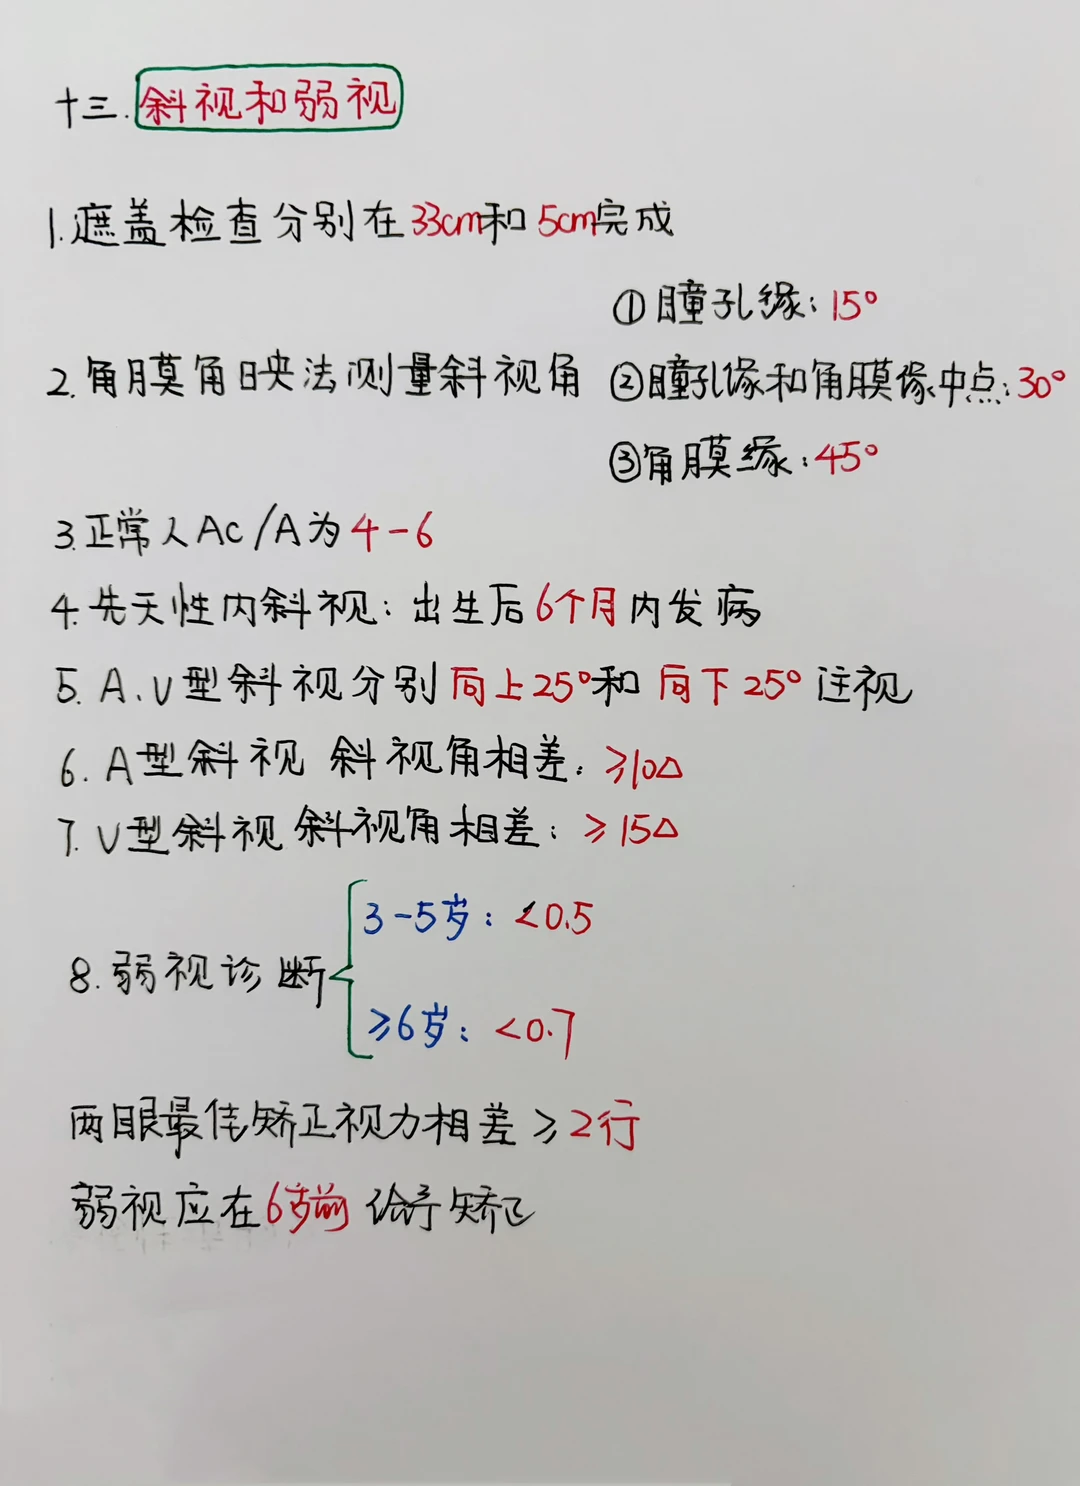 十三.斜视和弱视
1.遮盖检查分别在33cm和5cm完成
①瞳孔缘:15°
2.角膜角映法测量斜视角 ②瞳孔缘和角膜缘中点:30°
③角膜缘:45°
3.正常人AC/A为4-6
4.先天性内斜视:出生后6个月内发病
5.A.V型斜视分别向上25°和向下25°注视
6.A型斜视 斜视角相差:≥10△
7.V型斜视 斜视角相差:≥15△
3-5岁:<0.5
8.弱视诊断
≥6岁:<0.7
两眼最佳矫正视力相差≥2行
弱视应在6岁前给予矫正